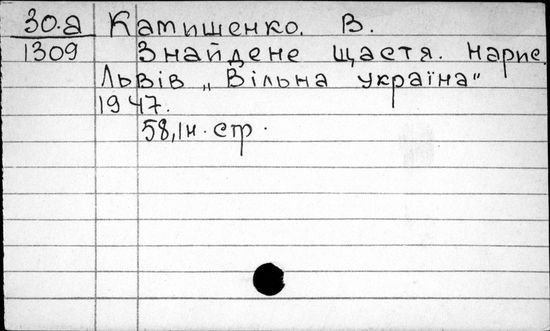 30.а Катишенко. В.
1309 Знайдене щастя. Нарис.
Львів „Вільна україна"
1947.
58,1н. стр.